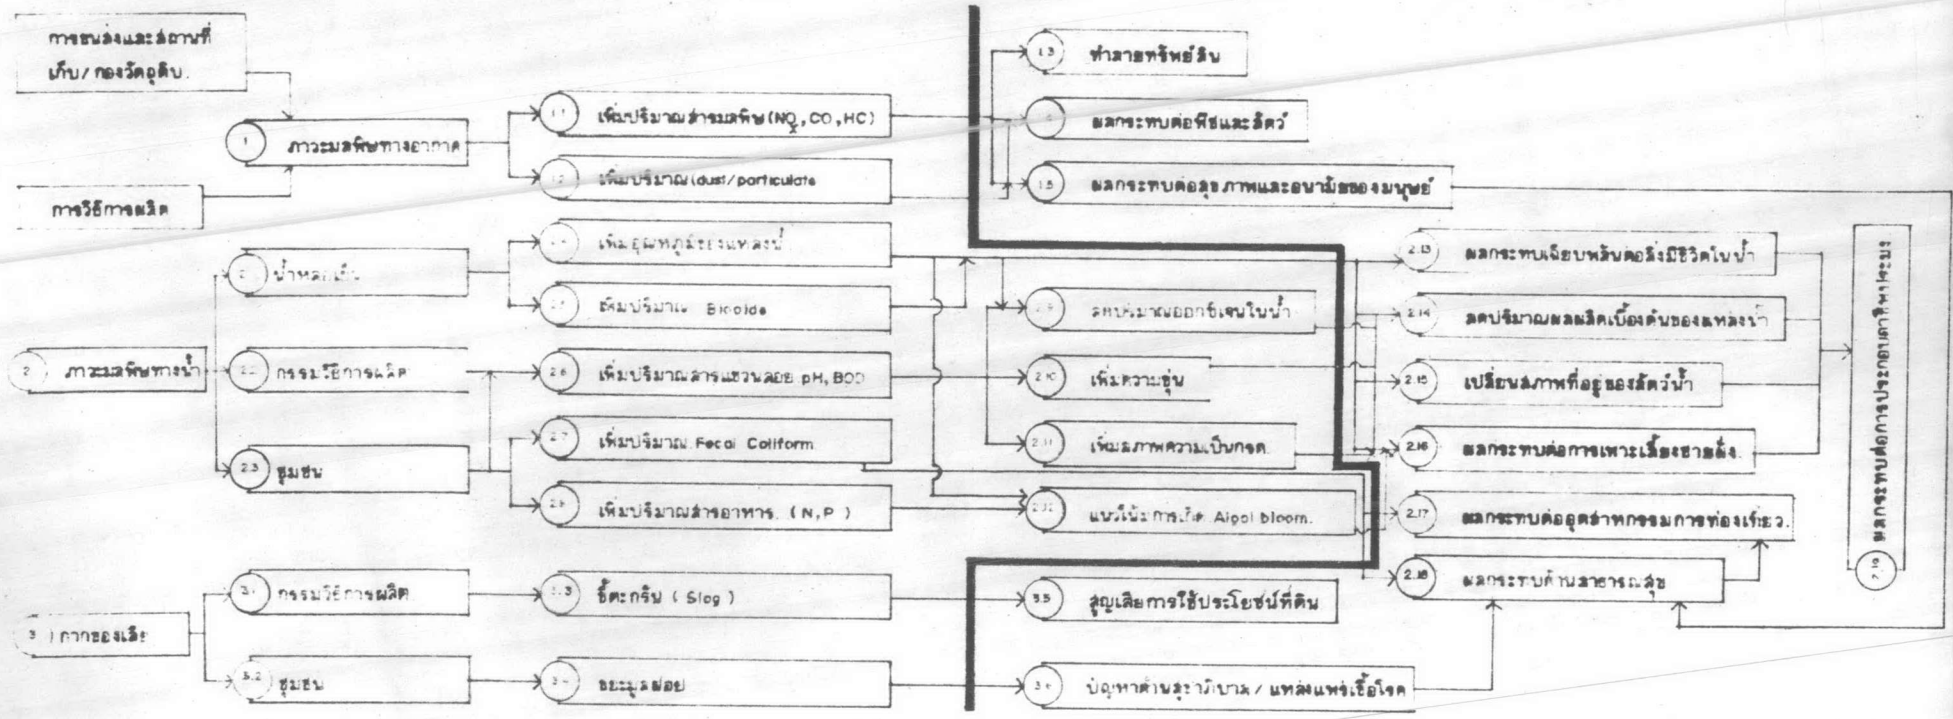 การขนส่งและสถานที่
เก็บ/กองวัตถุดิบ
1 ภาวะมลพิษทางอากาศ
การวิธีการผลิต
1.1 เพิ่มปริมาณสารมลพิษ (NOx, CO, HC)
1.2 เพิ่มปริมาณ (dust/particulate
1.3 ทำลายทรัพย์สิน
ผลกระทบต่อพืชและสัตว์
1.5 ผลกระทบต่อสุขภาพและอนามัยของมนุษย์
2 ภาวะมลพิษทางน้ำ
น้ำหล่อเย็น
2.2 กรรมวิธีการผลิต
2.3 ชุมชน
เพิ่มอุณหภูมิของแหล่งน้ำ
เพิ่มปริมาณ Biocide
2.6 เพิ่มปริมาณสารแขวนลอย pH, BOD
2.7 เพิ่มปริมาณ Fecal Coliform
เพิ่มปริมาณสารอาหาร (N, P)
2.9 ลดปริมาณออกซิเจนในน้ำ
2.10 เพิ่มความขุ่น
2.11 เพิ่มสภาพความเป็นกรด
2.12 แนวโน้มการเกิด Algal bloom.
2.13 ผลกระทบเฉียบพลันต่อสิ่งมีชีวิตในน้ำ
2.14 ลดปริมาณผลผลิตเบื้องต้นของแหล่งน้ำ
2.15 เปลี่ยนสภาพที่อยู่ของสัตว์น้ำ
2.16 ผลกระทบต่อการเพาะเลี้ยงชายฝั่ง.
2.17 ผลกระทบต่ออุตสาหกรรมการท่องเที่ยว.
2.18 ผลกระทบด้านสาธารณสุข
2.19 ผลกระทบต่อการประกอบอาชีพประมง
3 กากของเสีย
3.1 กรรมวิธีการผลิต
3.2 ชุมชน
3.3 ขี้ตะกรัน (Slag)
3.4 ขยะมูลฝอย
3.5 สูญเสียการใช้ประโยชน์ที่ดิน
3.6 ปัญหาด้านสุขาภิบาล/แหล่งแพร่เชื้อโรค